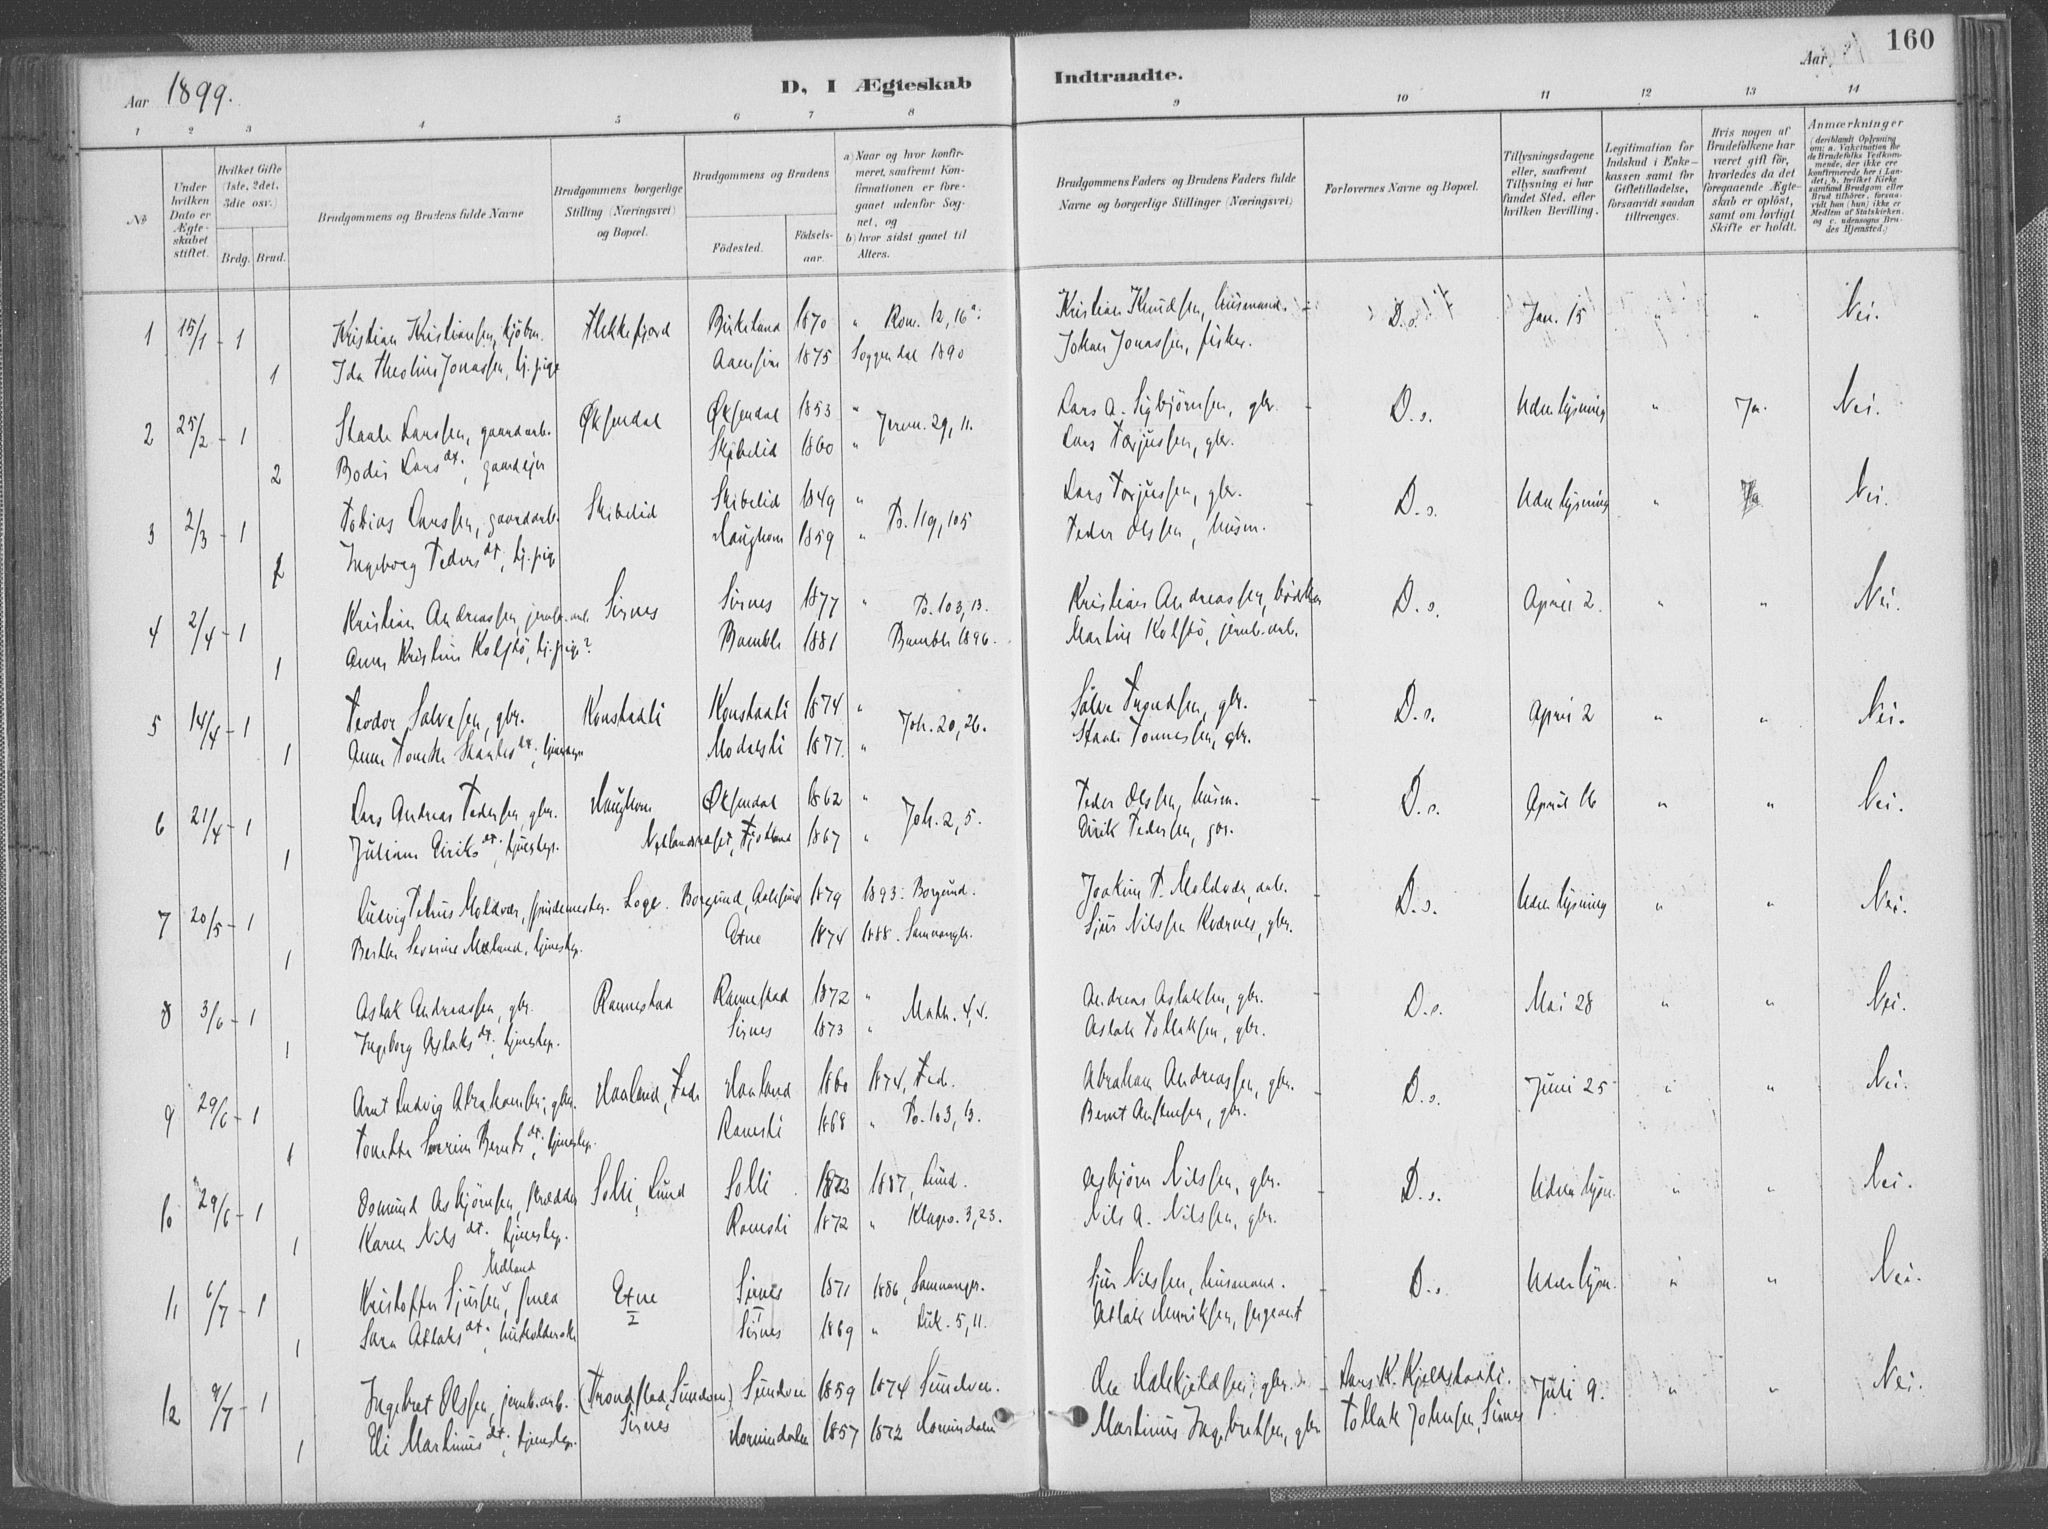 160
Aar 1899.
D, I Ægteskab Indtraadte.
Aar
1 2 3 4 5 6 7 8 9 10 11 12 13 14
№
Under hvilken Dato er Ægteskabet stiftet.
Hvilket Gifte (1ste, 2det, 3die osv.)
Brdg. Brud.
Brudgommens og Brudens fulde Navne
Brudgommens borgerlige Stilling (Næringsvei) og Bopæl.
Brudgommens og Brudens
Födested. Födselsaar.
a) Naar og hvor konfirmeret, saafremt Konfirmationen er foregaaet udenfor Sognet, og
b) hvor sidst gaaet til Alters.
Brudgommens Faders og Brudens Faders fulde Navne og borgerlige Stillinger (Næringsvei)
Forlovernes Navne og Bopæl.
Tillysningsdagene eller, saafremt Tillysning ei har fundet Sted, efter hvilken Bevilling.
Legitimation for Indskud i Enkekassen samt for Giftetilladelse, forsaavidt saadan tiltrænges.
Hvis nogen af Brudefolkene har været gift för, hvorledes da det foregaaende Ægteskab er oplöst, samt om lovligt Skifte er holdt.
Anmærkninger (deriblandt Oplysning om: a. Vakcination for de Brudefolks Vedkommende, der ikke ere konfirmerede her i Landet; b. hvilket Kirkesamfund Brudgom eller Brud tilhörer, forsaavidt han (hun) ikke er Medlem af Statskirken. og c. udensogns Brudes Hjemsted.)
1 15/1 - 1 Kristian Kristiansen, kjöbm. Flekkefjord Birkeland 1870 " Rom. 12, 16a. Kristian Knudsen, husmand. - D.s. Jan. 15 " " Nei.
1 Ida Theoline Jonassen, tj.pige Aamsim 1875 Soggendal 1890 Johan Jonassen, fisker.
2 25/2 - 1 Staale Larssen, gaardarb. Øksendal Øksendal 1853 " Jerem. 29, 11. Lars A. Sigbjørnsen, gbr. - D.s. Uden lysning " Ja. Nei.
2 Bodil Larsdt., gaardejer Skibelid 1860 " Lars Torjussen, gbr.
3 2/3 - 1 Tobias Larssen, gaardarb. Skibelid Skibelid 1849 " Ps. 119, 105 Lars Torjussen, gbr. - D.s. Uden lysning " Nei.
Ingeborg Pedersdt., tj.pige Haughom 1859 " Peder Olssen, husm.
4 2/4 - 1 Kristian Andreassen, jernb.arb. Sirnes Sirnes 1877 " Ps. 103, 13. Kristian Andreassen, bödker D.s. April 2. " " Nei.
1 Anne Kristine Kolstö, tj.pige? Bamble 1881 Bamble 1896. Martin Kolstö, jernb.arb.
5 14/4 - 1 Teodor Salvesen, gbr. Konstadli Konstadli 1874 " Joh. 20, 26. Salve Trondsen, gbr. - D.s. April 2 " " Nei.
1 Anne Tonette Staalesdt., tjenestep. Modalsli 1877. " Staale Tonnessen, gbr.
6 21/4 - 1 Lars Andreas Pedersen, gbr. Haughom Øksendal 1862 " Joh. 2, 5. Peder Olssen, husm. - D.s. April 16 " " Nei.
1 Juliane Eiriksdt., tjenestep. Fjotland 1867 " Eirik Pedersen, gbr.
7 20/5 - 1 Ludvig Petrus Moldvær, smedemester. Loge. Borgund, Aalesund 1879 1893: Borgund. Joakim P. Moldvær, arb. - D.s. Uden lysning " " Nei.
1 Berthe Severine Mæland, tjenestep. Etne 1874 1888. Samnanger. Sjur Nilssen Kvernes, gbr.
8 3/6 - 1 Aslak Andreassen, gbr. Rannestad Rannestad 1872 " Math. 4, 4. Andreas Aslaksen, gbr. - D.s. Mai 28 " " Nei.
1 Ingeborg Aslaksdt., tjenestep. Sirnes 1873 " Aslak Tollaksen, gbr.
9 29/6 - 1 Arnt Ludvig Abrahamsen, gbr. Haaland, Feda Haaland 1860 1874, Feda. Abraham Andreassen, gbr. - D.s. Juni 25 " " Nei.
1 Tonette Severine Berntsdt., tjenestep. Ramsli 1868 " Ps. 103, 13. Bernt Austensen, gbr.
10 29/6 - 1 Osmund Asbjørnsen, skrædder Solli, Lund Solli 1872 1887, Lund. Asbjørn Nilssen, gbr. - D.s. Uden lysn. " " Nei.
1 Karen Nilsdt. tjenestep. Ramsli 1872 " Klages. 3, 23. Nils A. Nilssen, gbr.
11 6/7 - 1 Kristoffer Sjursen Mæland, smed Etne Sirnes 1871 1886, Samnanger. Sjur Nilssen, husmand. - D.s. Uden lysn. " " Nei.
1 Sara Aslaksdt., husholderske Sirnes 1869 " Luk. 5, 11. Aslak Henriksen, sergeant
12 9/7 - 1 Ingebret Olssen, jernb.arb. (Trondstad, Sundven) Sundven 1859 1874 Sundven. Ole Halkjeldsen, gbr. - Lars K. Kjeldstadli. Juli 9. " " Nei.
1 Eli Martinusdt., tjenestep. Sirnes Hornindalen 1857 1872 Hornindalen Martinus Ingebretsen, gbr Tollak Johnsen, Sirnes